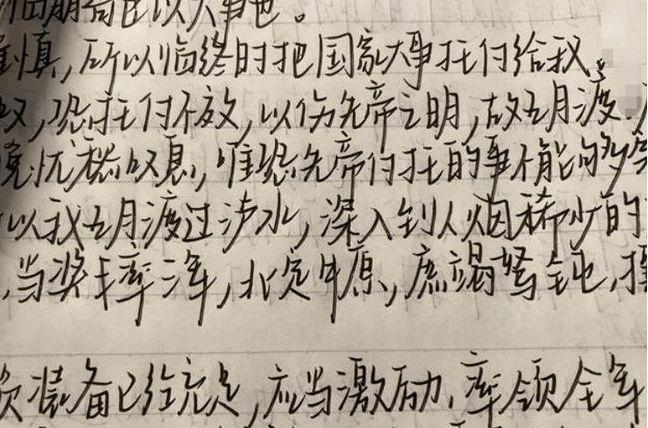 临崩寄臣以大事也。
谨慎,所以临终时把国家大事托付给我。
叹,恐托付不效,以伤先帝之明,故五月渡
晚忧愁叹息,唯恐先帝付托的事不能够
以我五月渡过泸水,深入到人烟稀少的
,当奖率三军,北定中原,庶竭驽钝,
装备已经充足,应当激励、率领全军